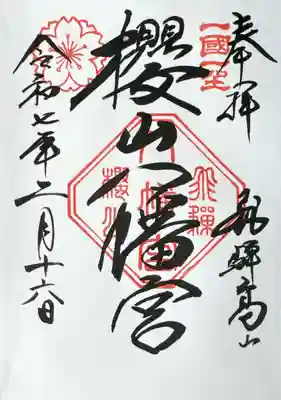 奉拝
一國一社
飛騨高山
櫻山八幡宮
令和七年二月十六日